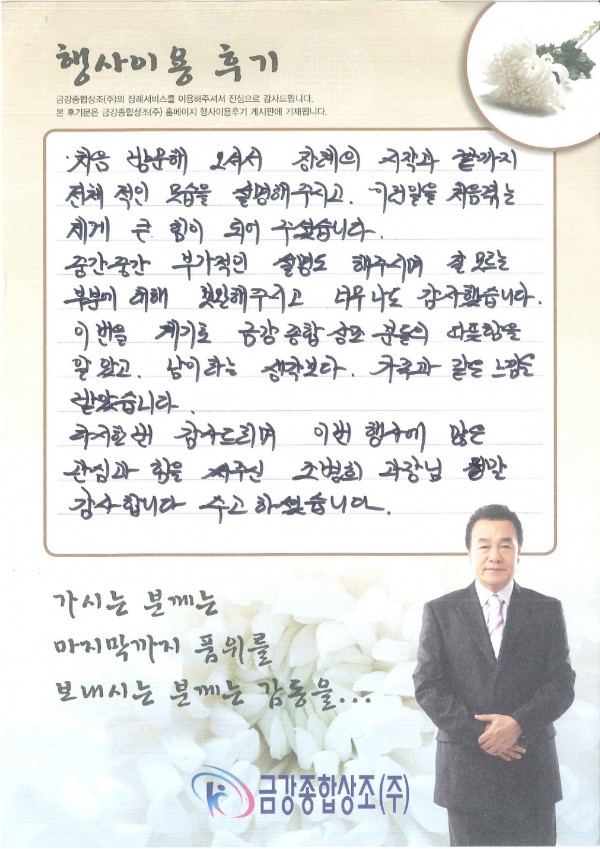 행사이용 후기
금강종합상조(주)의 장례서비스를 이용해주셔서 진심으로 감사드립니다.
본 후기문은 금강종합상조(주) 홈페이지 행사이용후기 게시판에 기재됩니다.
처음 방문해 오셔서 장례의 시작과 끝까지
전체 적인 모습을 설명해주시고. 이런일을 처음겪는
제게 큰 힘이 되어 주셨습니다.
중간중간 부가적인 설명도 해주시며 잘 모르는
부분에 대해 조언해주시고 너무나도 감사했습니다.
이번을 계기로 금강종합상조 분들의 따뜻함을
알 았고. 남이라는 생각보다. 가족과 같은 느낌을
받았습니다.
다시한번 감사드리며 이번 행사에 많은
관심과 힘을 써주신 조병희 과장님 정말
감사합니다 수고하셨습니다.
가시는 분께는
마지막까지 품위를
보내시는 분께는 감동을...
금강종합상조(주)